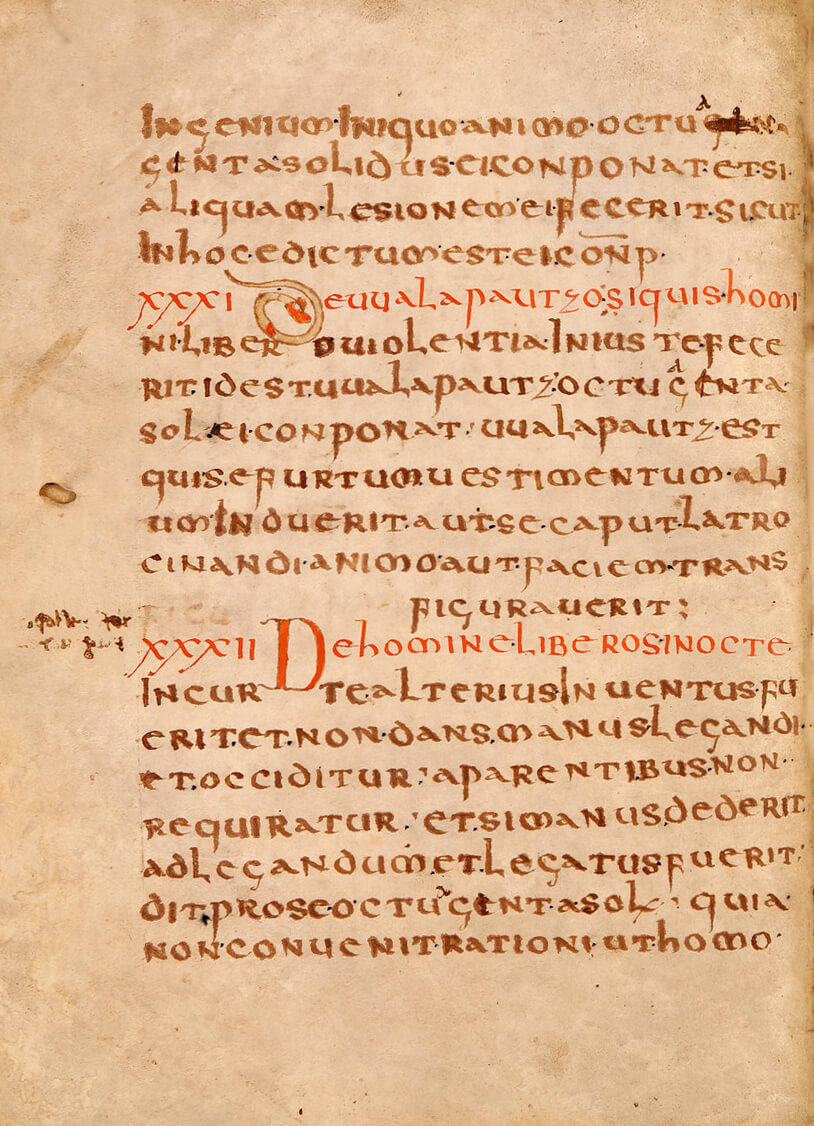 INGENIUM·INIQUO·ANIMO·OCTUA
GENTA SOLIDUS·EI·CONPONAT·ET·SI·
ALIQUAM·LESIONEM·EI·FECERIT·SICUT
IN hOC·EDICTUM·EST·EI·CONP·
XXXI DE UUALAPAUTZ·OSI QUIS·hOMI
NI·LIBERO UIOLENTIA·INIUSTE FECE
RIT·ID EST·UUALAPAUTZ OCTUAGENTA·
SOL·EI·CONPONAT·UUALAPAUTZ·EST
QUIS·E FURTUM UESTIMENTUM·ALI
UM INDUERIT·AUT·SE·CAPUT·LATRO
CINANDI·ANIMO AUT·FACIEM·TRANS
FIGURAUERIT:
XXXII DE hOMINE·LIBERO SI NOCTE
IN CURTE ALTERIUS·INUENTUS·FU
ERIT·ET·NON·DANS·MANUS·LEGANDI·
ET·OCCIDITUR:APARENTIBUS·NON·
REQUIRATUR:ET·SI MANUS·DEDERIT
AD LEGANDUM·ET·LEGATUS FUERIT:
DIT·PRO SE OCTUAGENTA SOL: QUIA
NON CONUENIT·RATIONI·UT·hOMO·